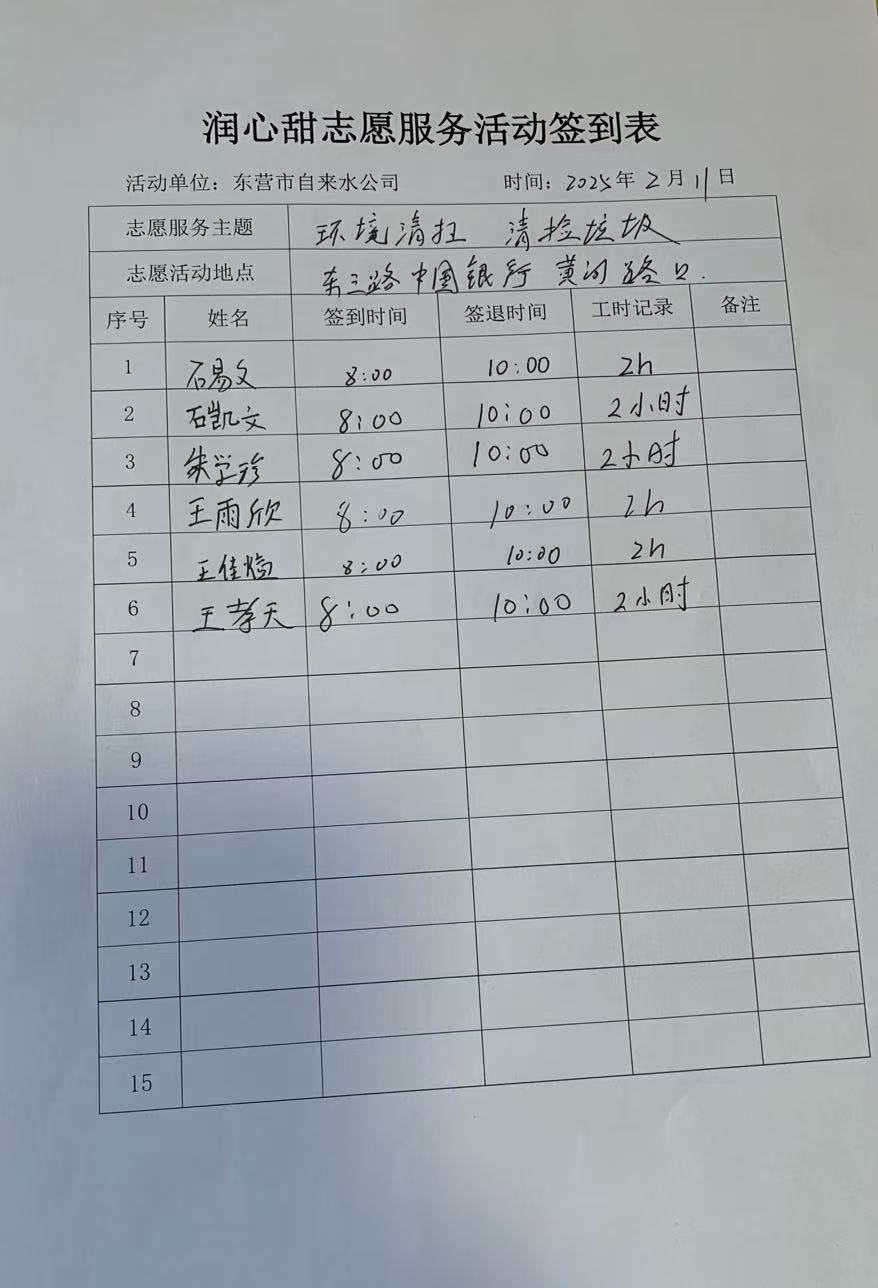 润心甜志愿服务活动签到表
活动单位：东营市自来水公司 时间：2025年2月11日
志愿服务主题 环境清扫 清捡垃圾
志愿活动地点 东三路中国银行 黄河路口.
序号 姓名 签到时间 签退时间 工时记录 备注
1 石易文 8:00 10:00 2h
2 石凯文 8:00 10:00 2小时
3 朱学珍 8:00 10:00 2小时
4 王雨欣 8:00 10:00 2h
5 王佳 8:00 10:00 2h
6 王孝天 8:00 10:00 2小时
7
8
9
10
11
12
13
14
15